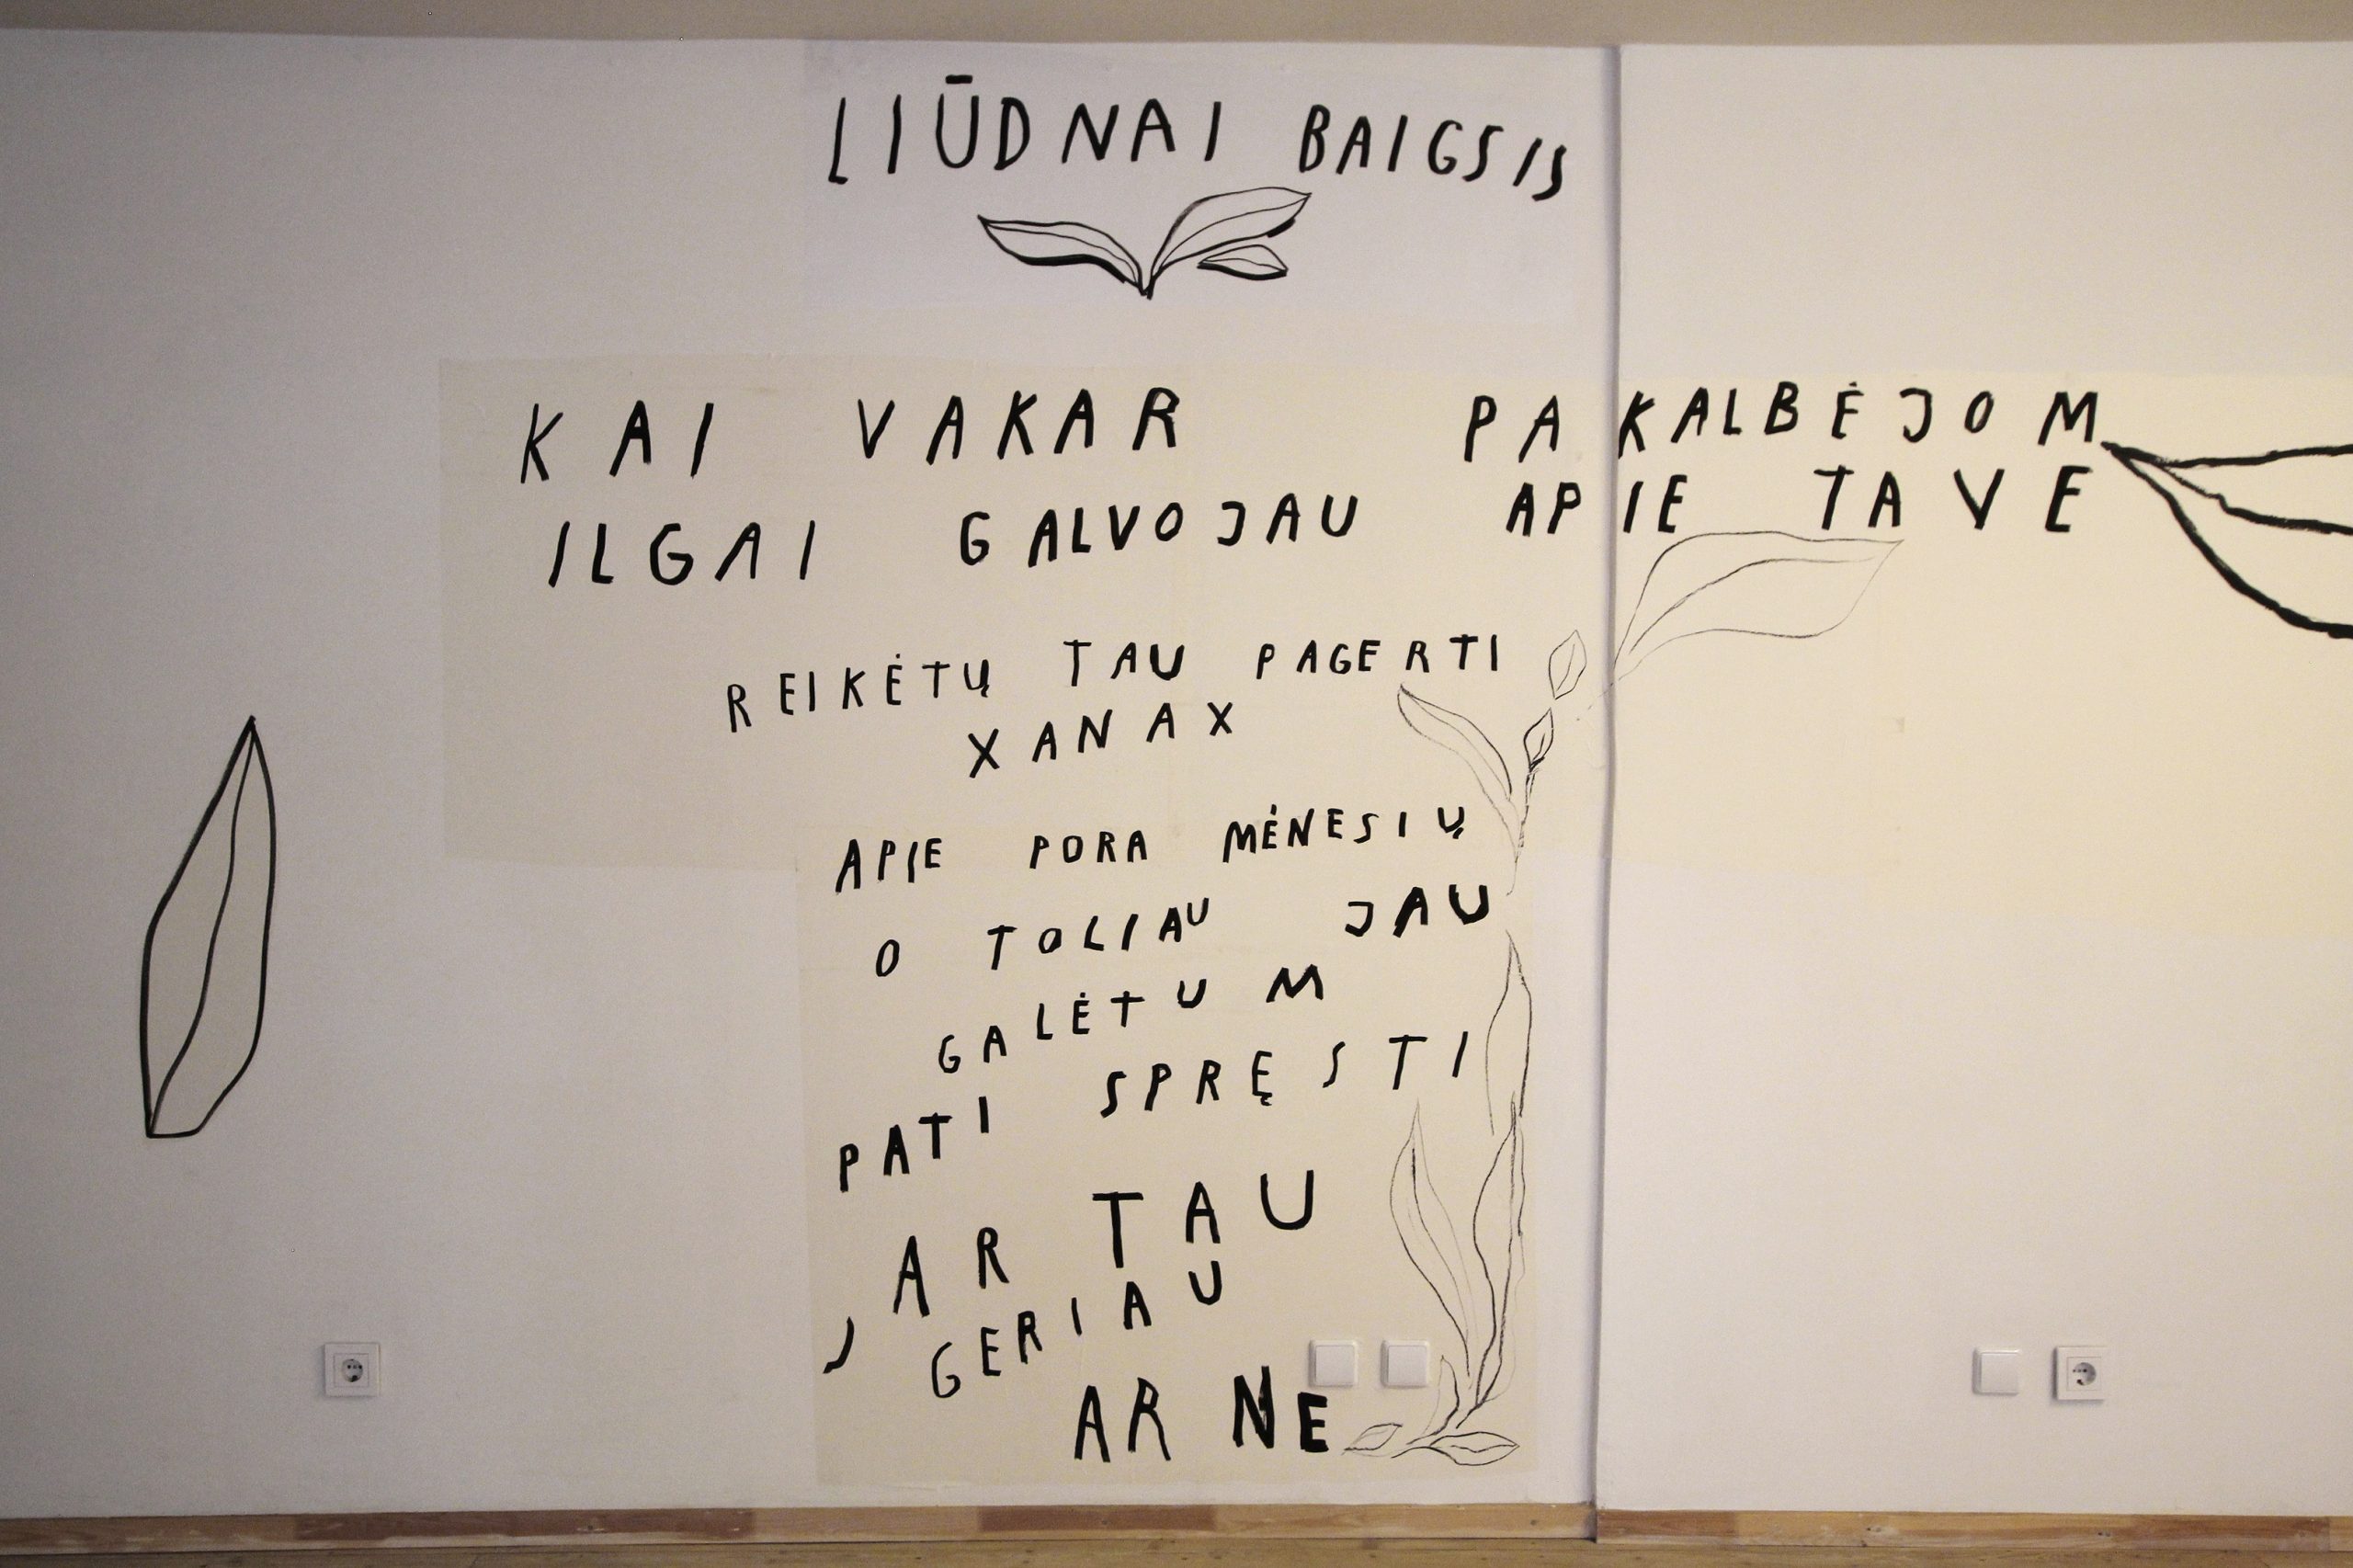 LIŪDNAI BAIGSIS
KAI VAKAR PAKALBĖJOM
ILGAI GALVOJAU APIE TAVE
REIKĖTŲ TAU PAGERTI
XANAX
APIE PORA MĖNESIŲ
O TOLIAU JAU
GALĖTUM
PATI SPRĘSTI
, AR TAU
GERIAU
AR NE